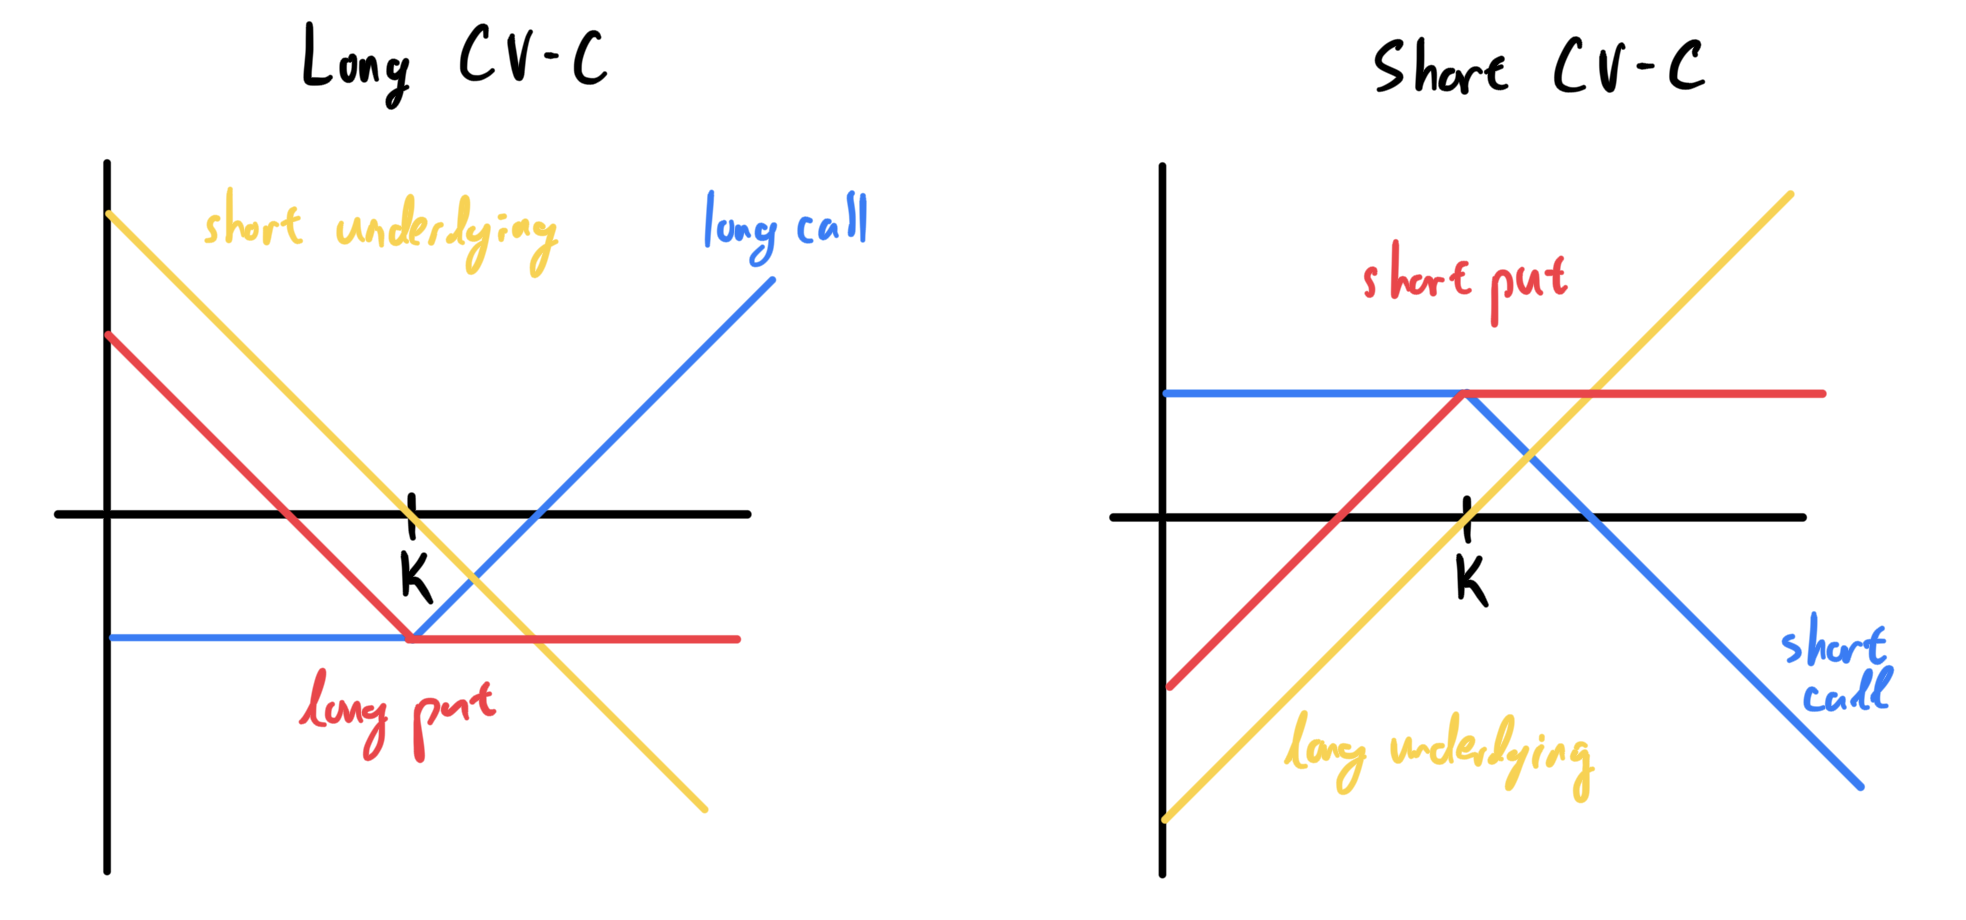 Long CV-C
short underlying
long call
K
long put
Short CV-C
short put
K
short
call
long underlying